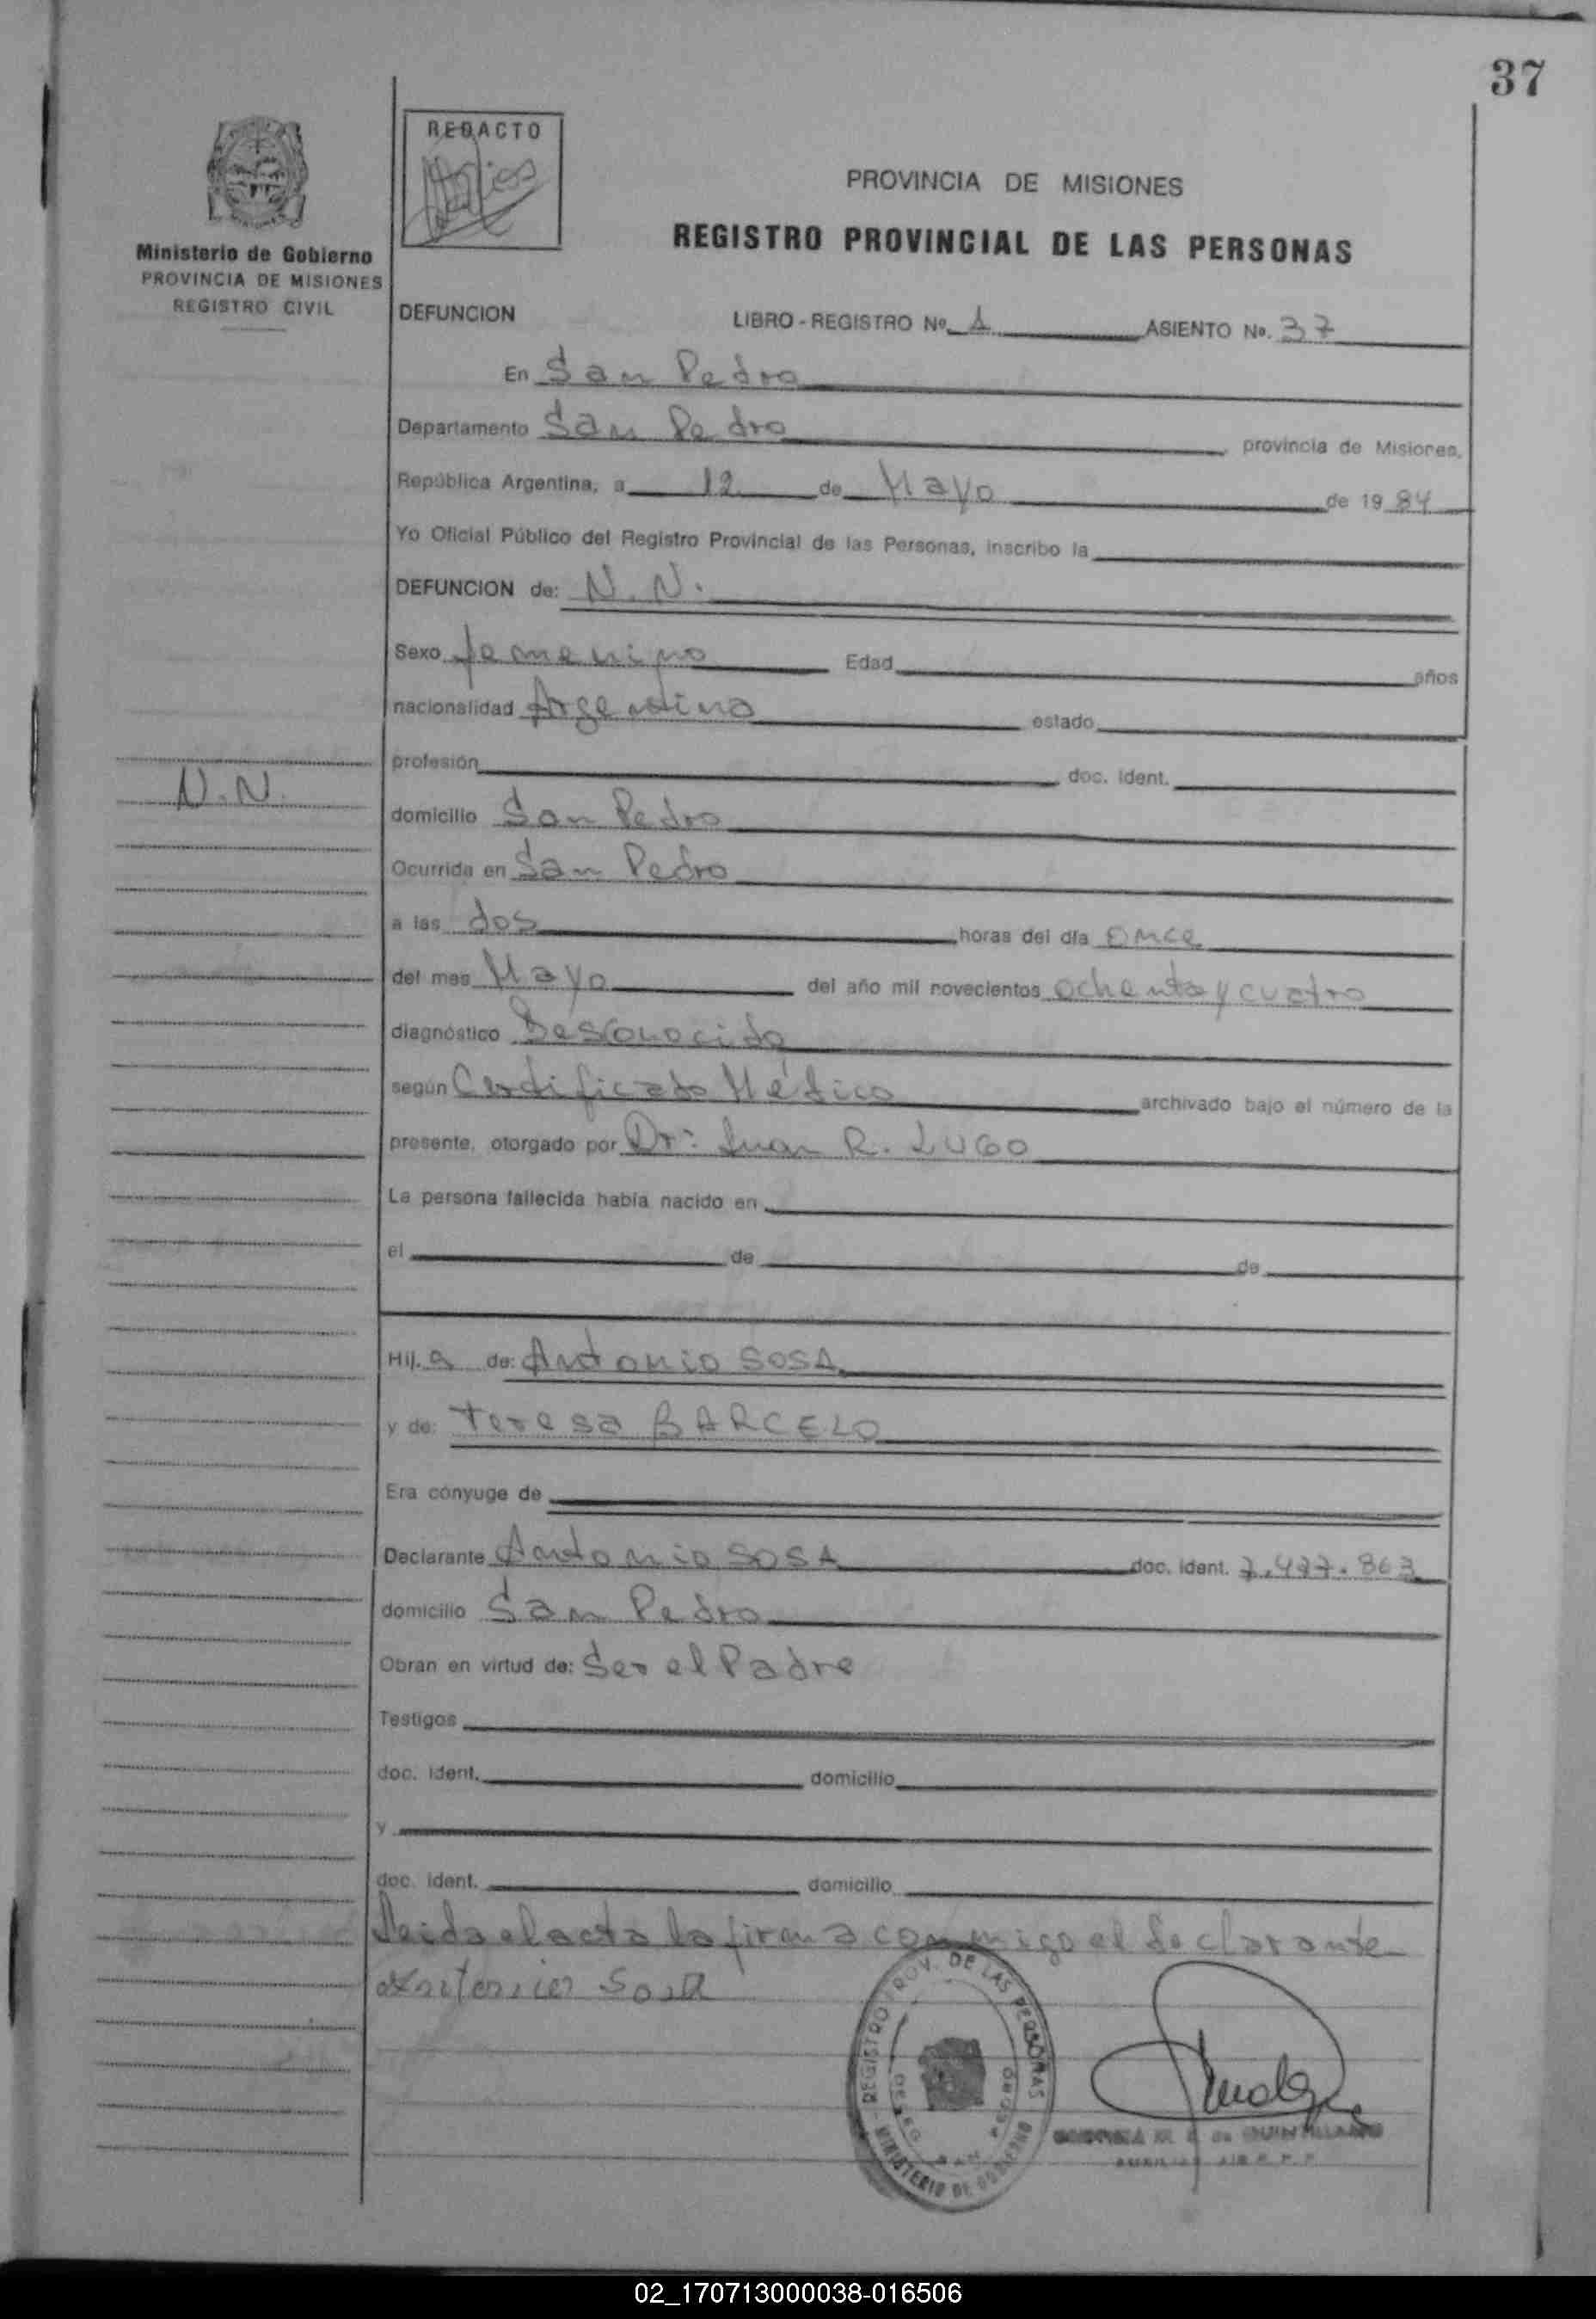 37
REDACTO
PROVINCIA DE MISIONES
REGISTRO PROVINCIAL DE LAS PERSONAS
Ministerio de Gobierno
PROVINCIA DE MISIONES
REGISTRO CIVIL
DEFUNCION LIBRO - REGISTRO Nº 1 ASIENTO No. 37
En San Pedro
Departamento San Pedro provincia de Misiones,
República Argentina, a 12 de Mayo de 19 84
Yo Oficial Público del Registro Provincial de las Personas, inscribo la
DEFUNCION de: N. N.
Sexo femenino Edad años
nacionalidad Argentina estado
profesión doc. ident.
N.N.
domicilio San Pedro
Ocurrida en San Pedro
a las dos horas del día once
del mes Mayo del año mil novecientos ochenta y cuatro
diagnóstico Desconocido
según Certificado Médico archivado bajo el número de la
presente, otorgado por Dr: Juan R. LUGO
La persona fallecida había nacido en
el de de
Hij. a de: Antonio SOSA
y de: Teresa BARCELO
Era cónyuge de
Declarante Antonio SOSA doc. ident. 7.497.863
domicilio San Pedro
Obran en virtud de: Ser el Padre
Testigos
doc. ident. domicilio
y
doc. ident. domicilio
Leida el acta la firma conmigo el declarante
Antonio Sosa
REGISTRO PROV. DE LAS PERSONAS
MINISTERIO DE GOBIERNO
02_170713000038-016506